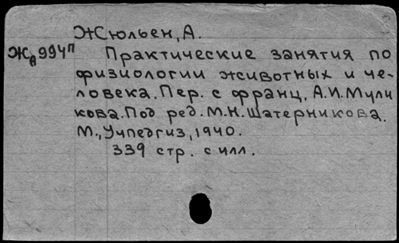 Жюльен, А.
ЖД994п Практические занятия по
физиологии животных и че-
ловека. Пер. с франц. А.И. Мули
кова. Под ред. М.Н. Шатерникова.
М., Учпедгиз, 1940.
339 стр. с илл.